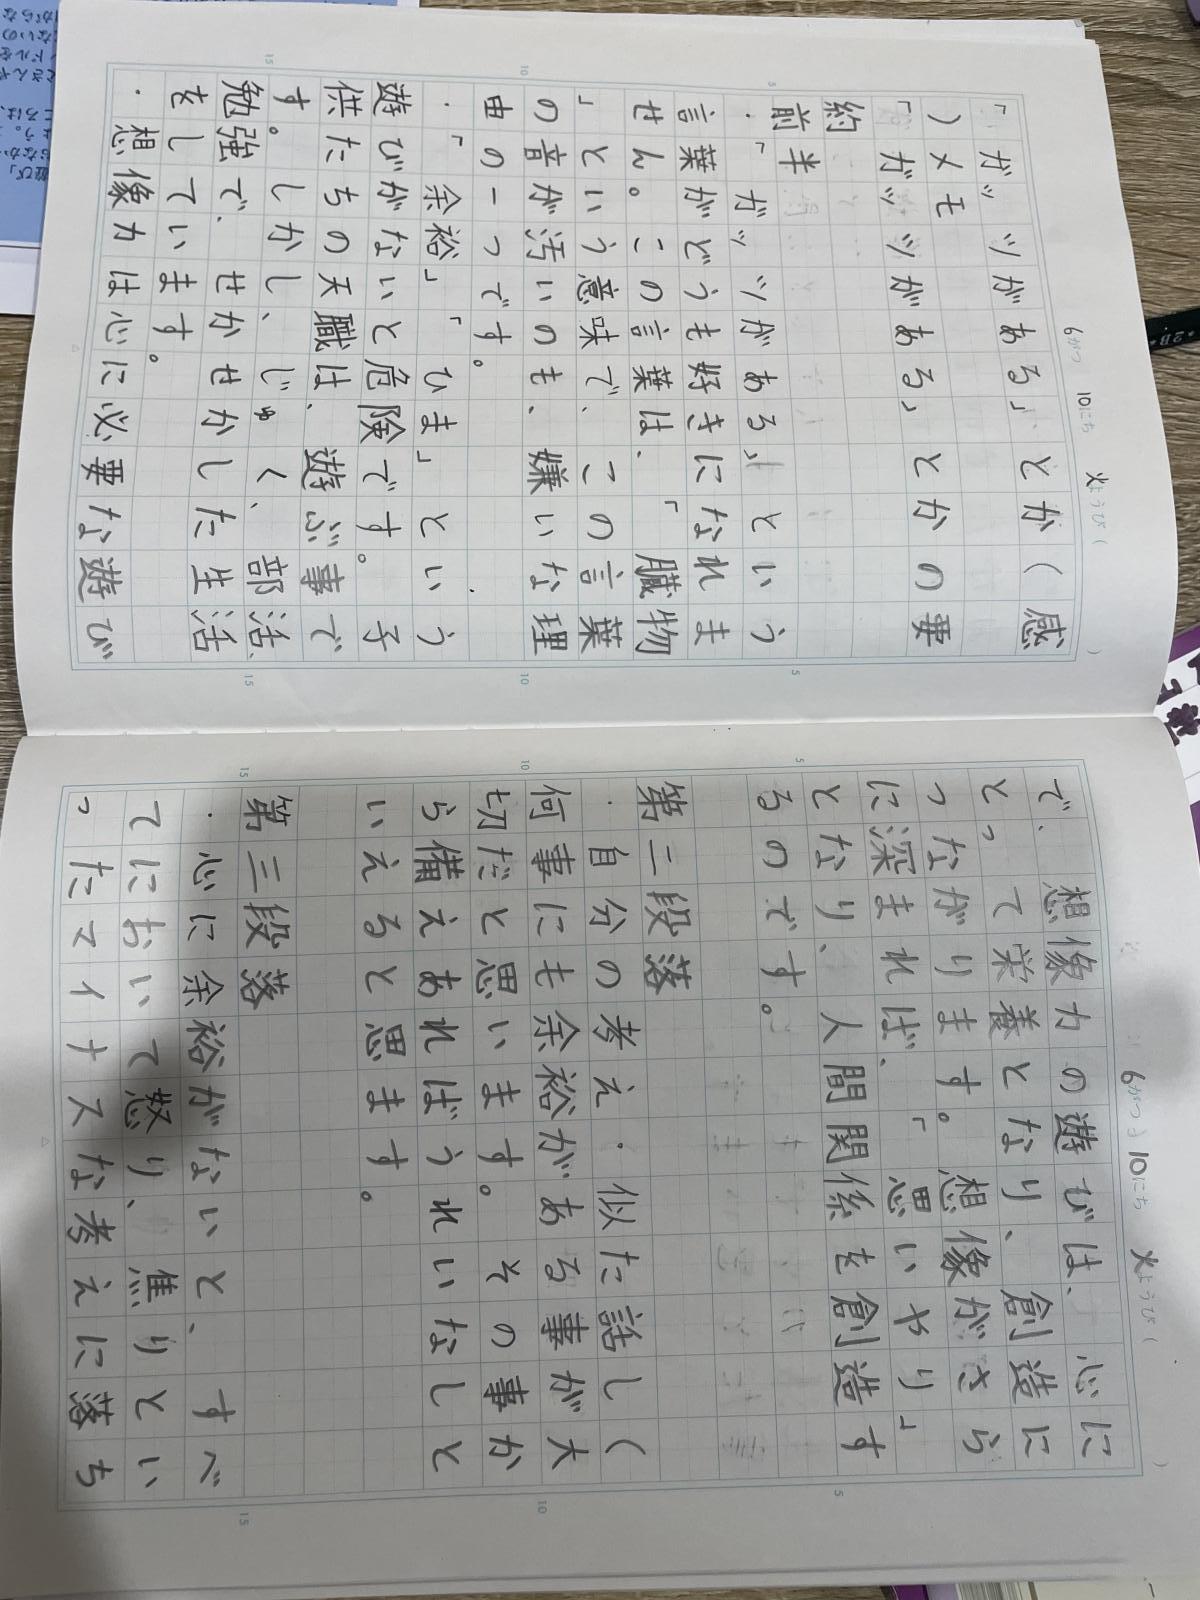 6がつ 10にち 火ようび（ ）
「ガッツがある」とか（感
）メモ
「ガッツがある」とかの要
約
前半
・「ガッツがある」という
言葉がどうも好きになれま
せん。この言葉は、「臓物
」という意味で、この言葉
の音が汚いのも、嫌いな理
由の一つです。
・「余裕」「ひま」という
遊びがないと危険です。子
供たちの天職は、遊ぶ事で
す。しかし、じゅく、部活、
勉強で、せかせかした生活
をしています。
・想像力は心に必要な遊び
5
10
15
6がつ 10にち 火ようび（ ）
で、想像力の遊びは、心に
とって栄養となり、創造に
つながります。想像がさら
に深まれば、「思いやり」
となり、人間関係を創造す
るのです。
第二段落
・自分の考え・似た話し（
何事にも余裕がある事が大
切だと思います。その事か
ら備えあればうれいなしと
いえると思ます。
第三段落
・心に余裕がないと、すべ
てにおいて怒り、焦りとい
ったマイナスな考えに落ち
5
10
15